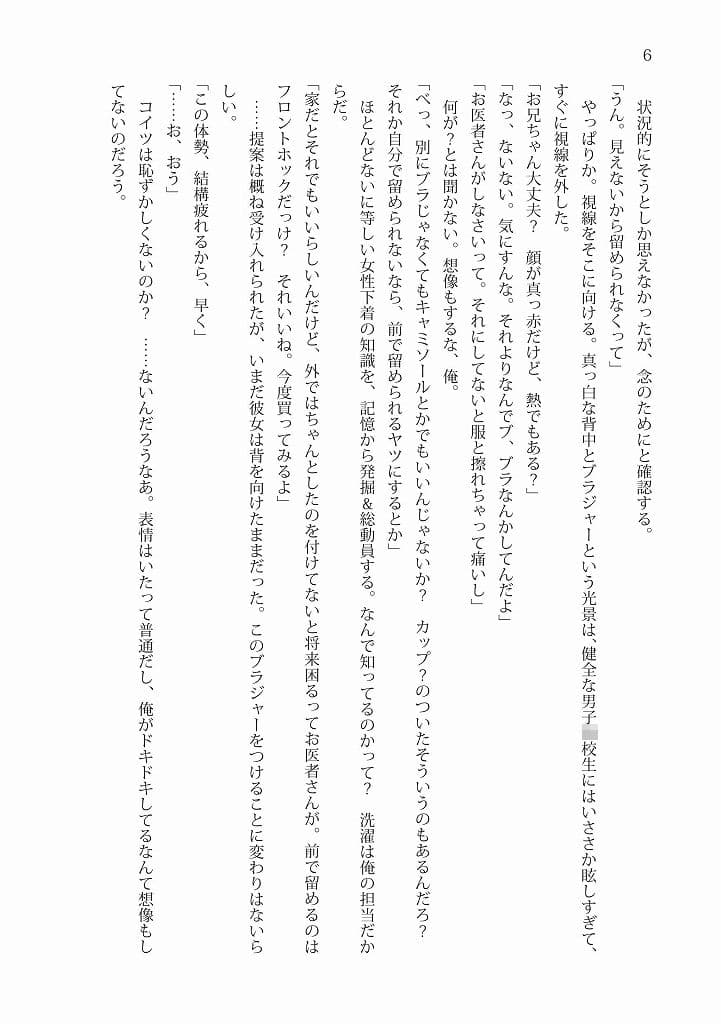 6
状況的にそうとしか思えなかったが、念のためにと確認する。
「うん。見えないから留められなくって」
やっぱりか。視線をそこに向ける。真っ白な背中とブラジャーという光景は、健全な男子校生にはいささか眩しすぎて、
すぐに視線を外した。
「お兄ちゃん大丈夫？　顔が真っ赤だけど、熱でもある？」
「なっ、ないない。気にすんな。それよりなんでブ、ブラなんかしてんだよ」
「お医者さんがしなさいって。それにしてないと服と擦れちゃって痛いし」
何が？とは聞かない。想像もするな、俺。
「べっ、別にブラじゃなくてもキャミソールとかでもいいんじゃないか？　カップ？のついたそういうのもあるんだろ？
それか自分で留められないなら、前で留められるヤツにするとか」
ほとんどないに等しい女性下着の知識を、記憶から発掘＆総動員する。なんで知ってるのかって？　洗濯は俺の担当だか
らだ。
「家だとそれでもいいらしいんだけど、外ではちゃんとしたのを付けてないと将来困るってお医者さんが。前で留めるのは
フロントホックだっけ？　それいいね。今度買ってみるよ」
……提案は概ね受け入れられたが、いまだ彼女は背を向けたままだった。このブラジャーをつけることに変わりはないら
しい。
「この体勢、結構疲れるから、早く」
「……お、おう」
コイツは恥ずかしくないのか？　……ないんだろうなあ。表情はいたって普通だし、俺がドキドキしてるなんて想像もし
てないのだろう。